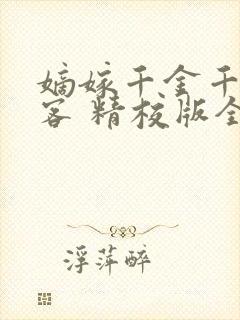 嫡嫁千金千山
客 精校版全
浮萍醉